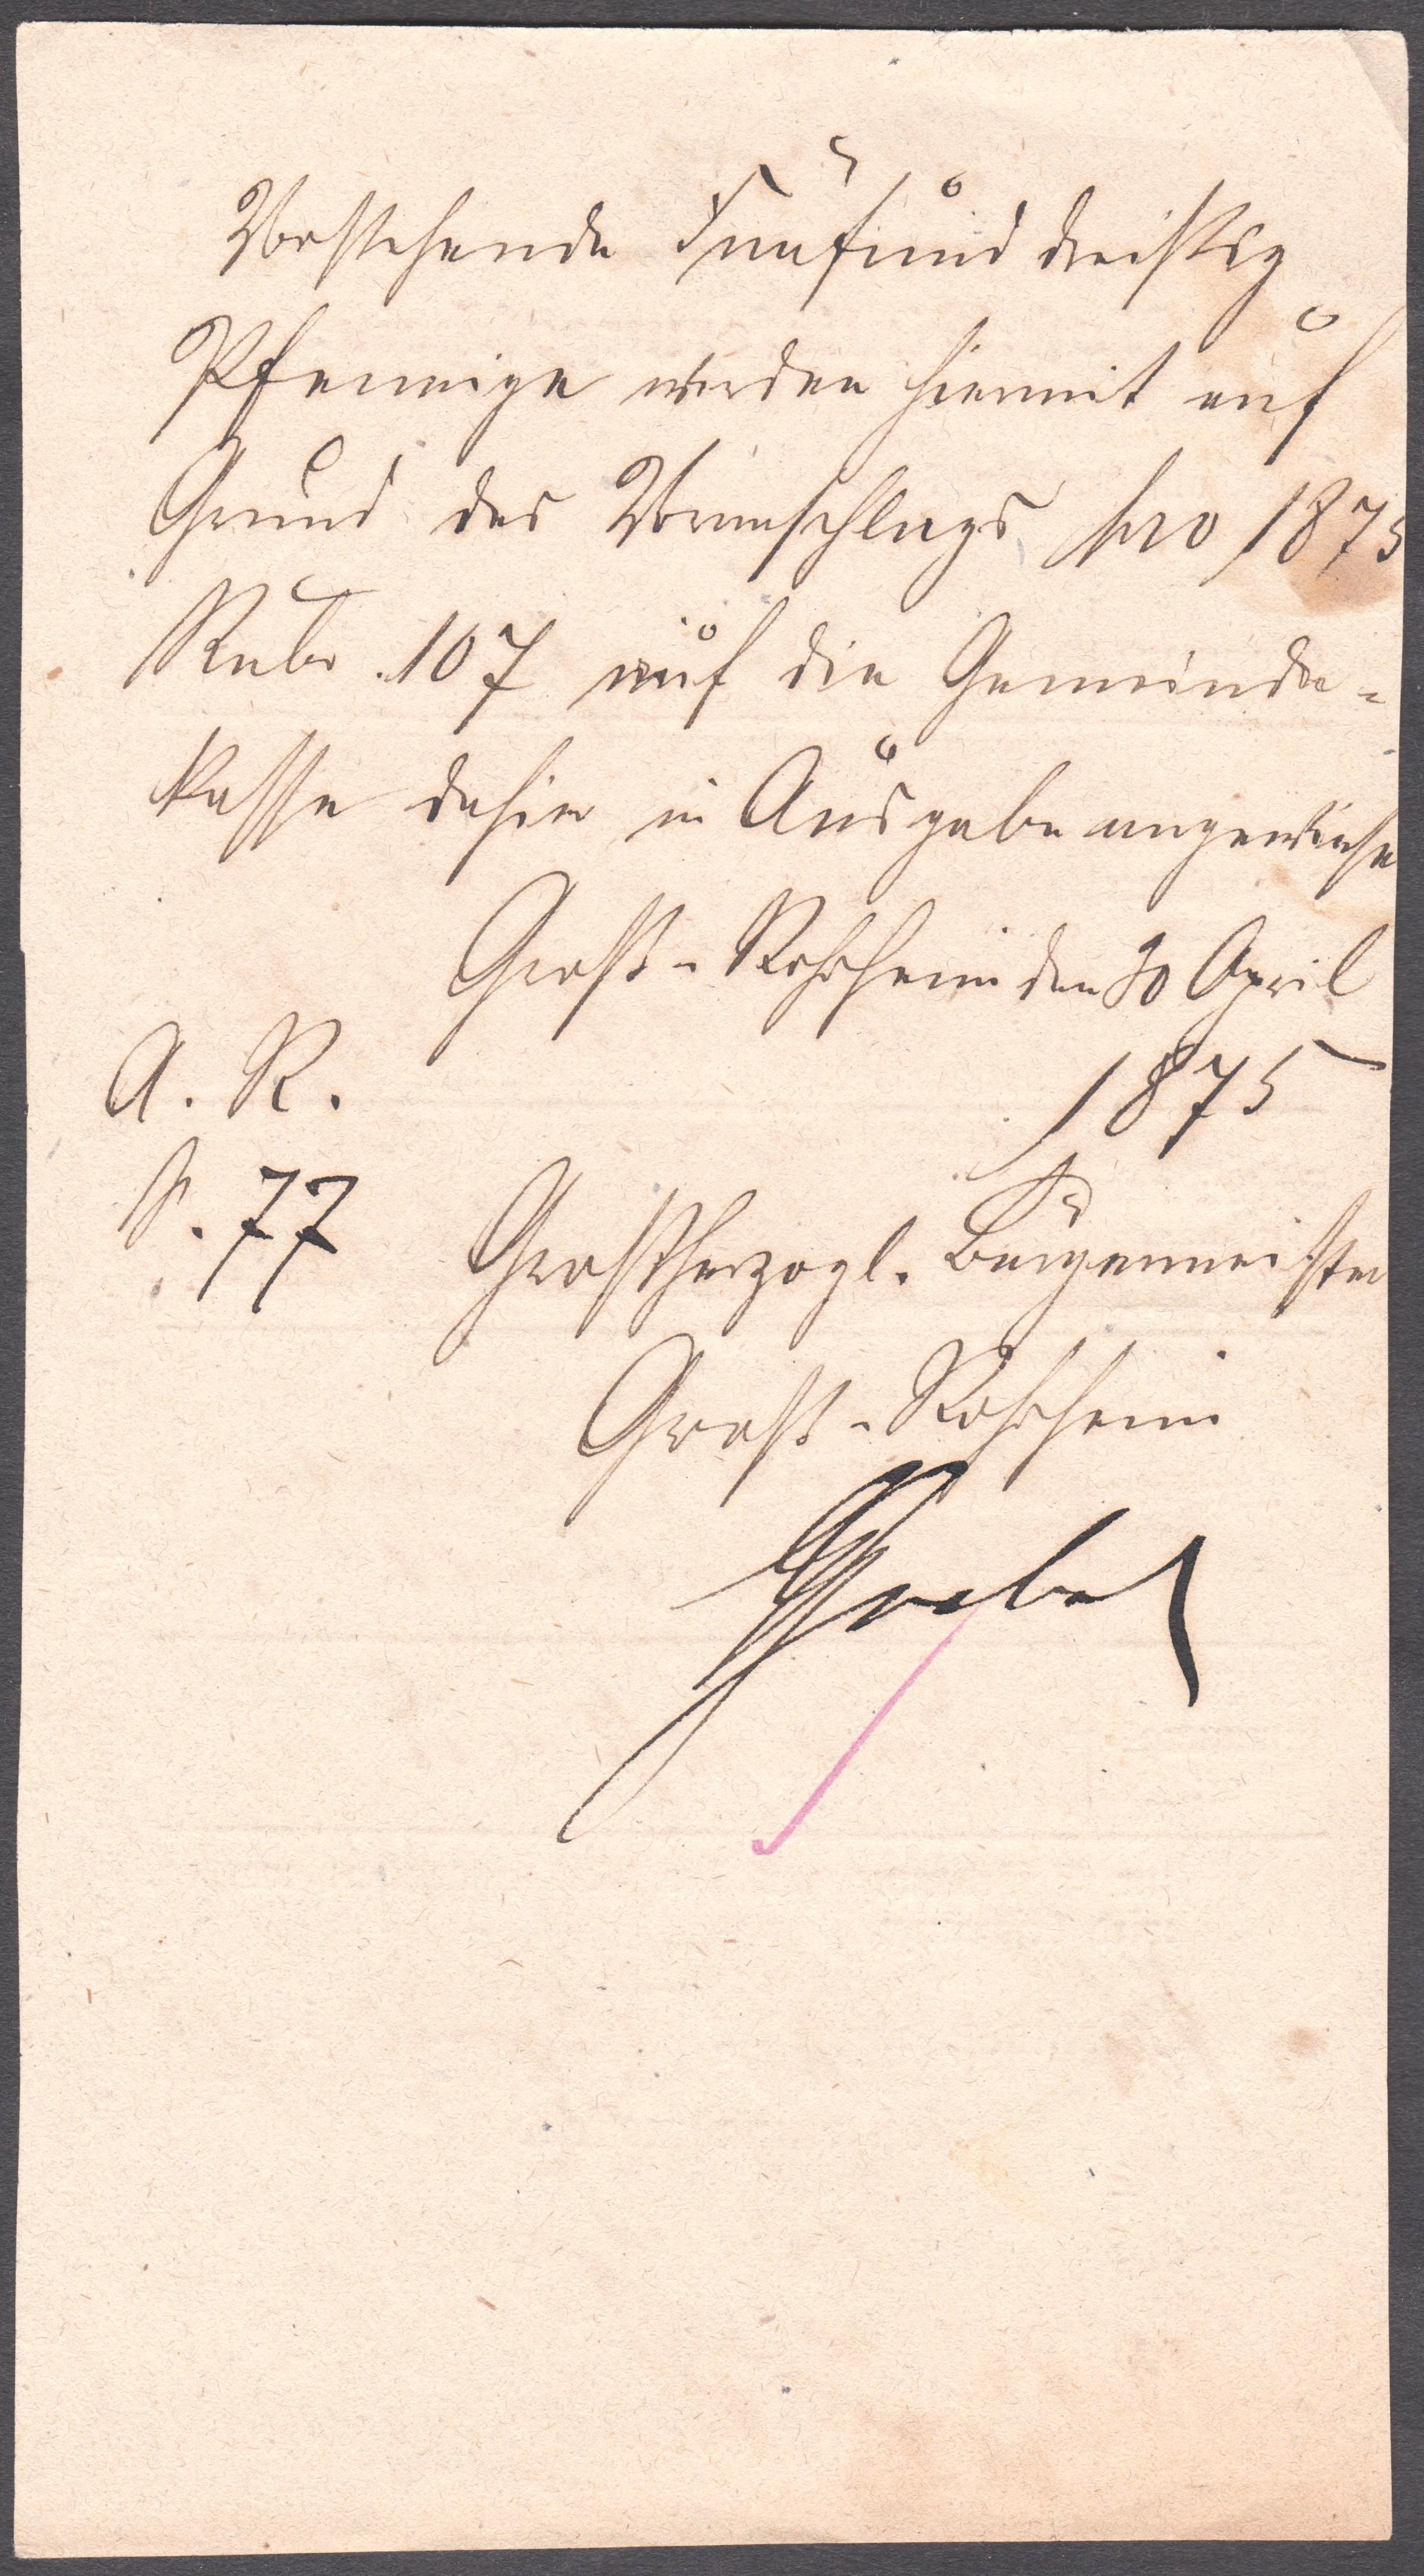 Vorstehende Fünfunddreißig
Pfennige werden hiermit auf
Grund des Voranschlags pro 1875
Rubr. 107 auf die Gemeinde-
kasse dahier in Ausgabe angewiesen
Groß-Rohrheim den 30 April
1875
A. R.
S. 77
Großherzogl. Bürgermeister
Groß-Rohrheim
Goebel